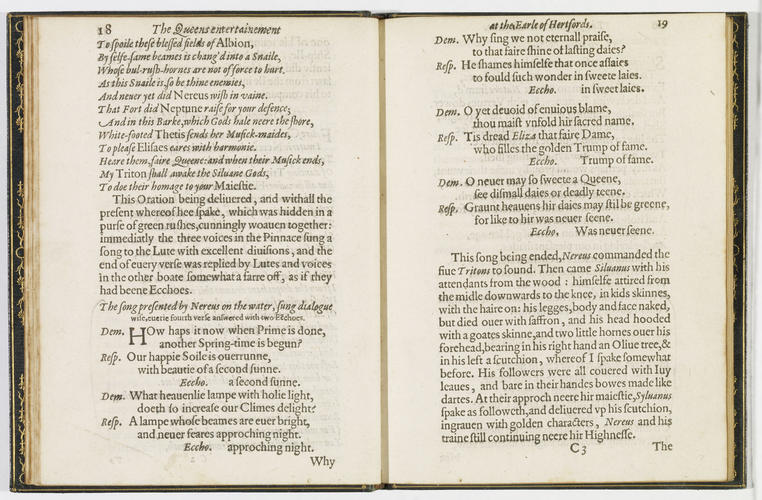 18 The Queens entertainement
To spoile these blessed fields of Albion,
By selfe-same beames is chang'd into a Snaile,
Whose bul-rush-hornes are not of force to hurt.
As this Snaile is, so be thine enemies,
And neuer yet did Nereus wish in vaine.
That Fort did Neptune raise for your defence;
And in this Barke, which Gods hale neere the shore,
White-footed Thetis sends her Musick-maides,
To please Elisaes eares with harmonie.
Heare them, faire Queene: and when their Musick ends,
My Triton shall awake the Siluane Gods,
To doe their homage to your Maiestie.
This Oration being deliuered, and withall the
present whereof hee spake, which was hidden in a
purse of green rushes, cunningly woauen together:
immediatly the three voices in the Pinnace sung a
song to the Lute with excellent diuisions, and the
end of euery verse was replied by Lutes and voices
in the other boate somewhat a farre off, as if they
had beene Ecchoes.
The song presented by Nereus on the water, sung dialogue
wise, euerie fourth verse answered with two Ecchoes.
Dem. HOw haps it now when Prime is done,
another Spring-time is begun?
Resp. Our happie Soile is ouerrunne,
with beautie of a second sunne.
Eccho. a second sunne.
Dem. What heauenlie lampe with holie light,
doeth so increase our Climes delight?
Resp. A lampe whose beames are euer bright,
and neuer feares approching night.
Eccho. approching night.
Why
at the Earle of Hertfords. 19
Dem. Why sing we not eternall praise,
to that faire shine of lasting daies?
Resp. He shames himselfe that once assaies
to fould such wonder in sweete laies.
Eccho. in sweet laies.
Dem. O yet deuoid of enuious blame,
thou maist vnfold hir sacred name.
Resp. Tis dread Eliza that faire Dame,
who filles the golden Trump of fame.
Eccho. Trump of fame.
Dem. O neuer may so sweete a Queene,
see dismall daies or deadly teene.
Resp. Graunt heauens hir daies may stil be greene,
for like to hir was neuer seene.
Eccho. Was neuer seene.
This song being ended, Nereus commanded the
fiue Tritons to sound. Then came Siluanus with his
attendants from the wood: himselfe attired from
the midle downwards to the knee, in kids skinnes,
with the haire on: his legges, body and face naked,
but died ouer with saffron, and his head hooded
with a goates skinne, and two little hornes ouer his
forehead, bearing in his right hand an Oliue tree, &
in his left a scutchion, whereof I spake somewhat
before. His followers were all couered with Iuy
leaues, and bare in their handes bowes made like
dartes. At their approch neere hir maiestie, Syluanus
spake as followeth, and deliuered vp his scutchion,
ingrauen with golden characters, Nereus and his
traine still continuing neere hir Highnesse.
C 3 The